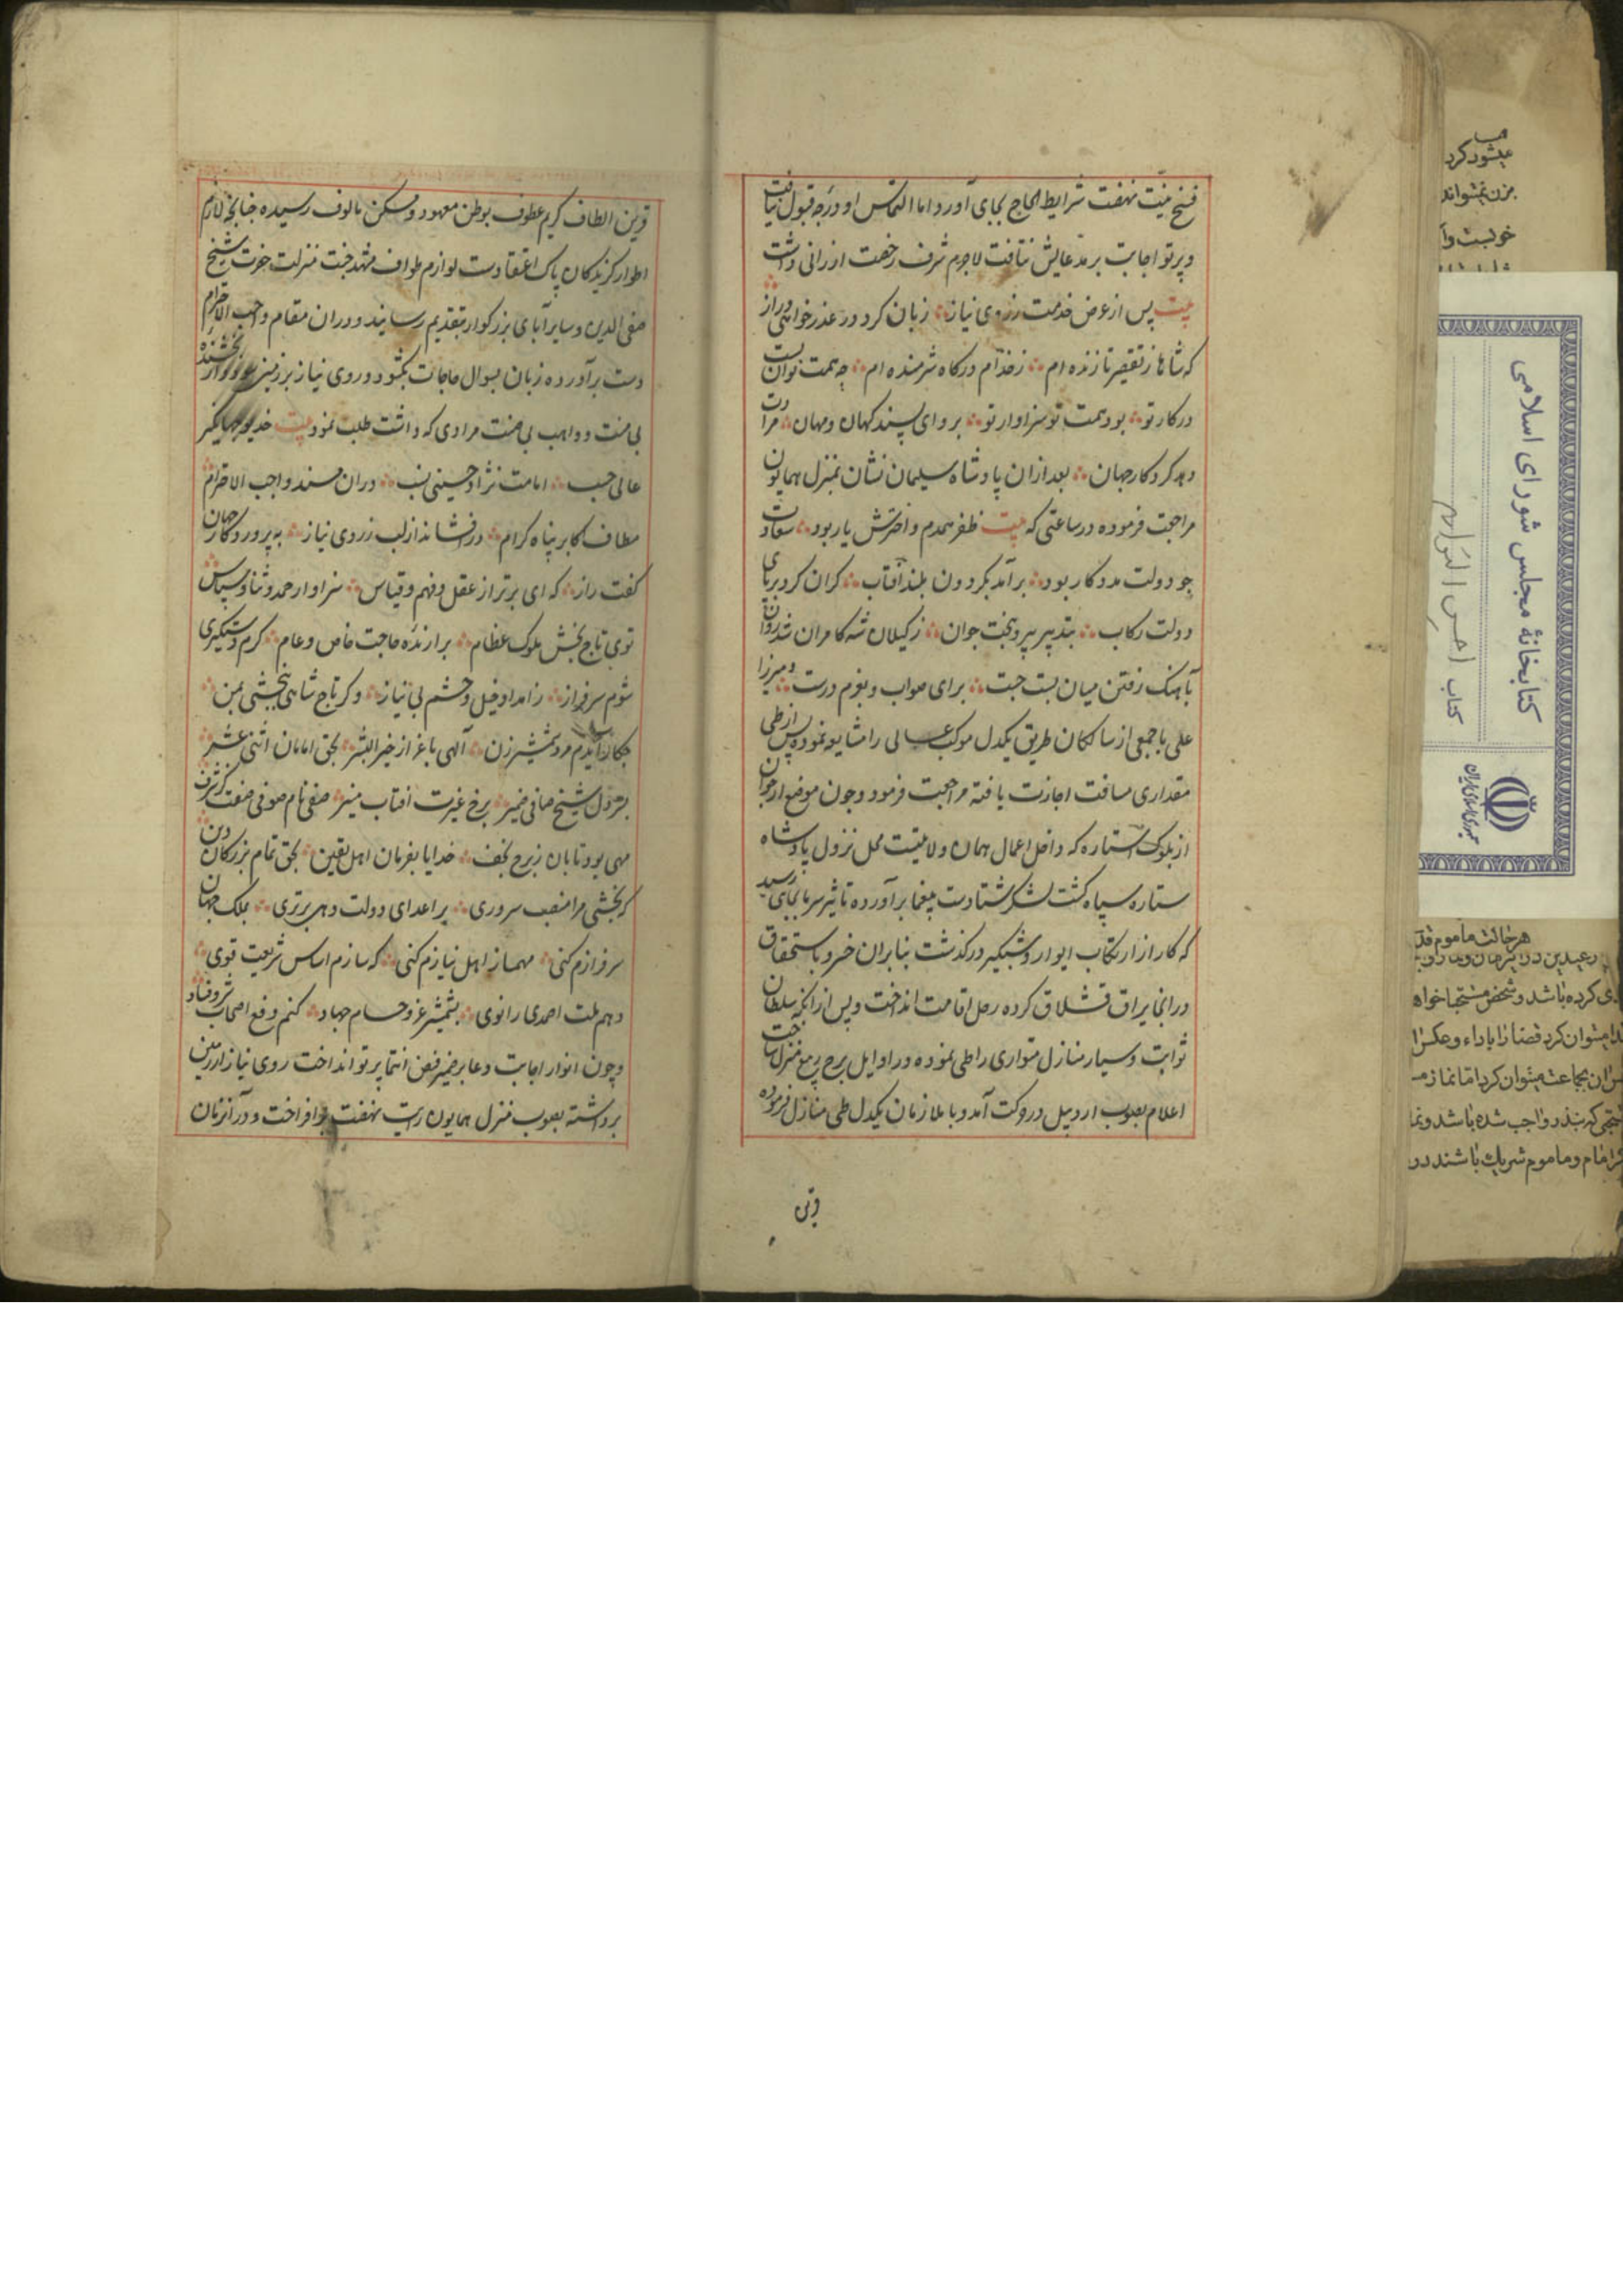 فسخ نیت نهضت شرایط الحاح بجای آورد اما التماس او درجه قبول نیافت
و پرتو اجابت بر مدعایش نتافت لاجرم شرف رخصت ارزانی داشت
بیت پس از عرض خدمت ز روی نیاز زبان کرد در عذرخواهی دراز
که شاها ز تقصیر نازنده ام ز خدام درکاه شرمنده ام چه همت توان بست
در کار تو بود همت تو سزاوار تو برو ای پسند کهان و مهان مرادت
دهد کردکار جهان بعد ازان پادشاه سلیمان نشان بمنزل همایون
مراجعت فرموده در ساعتی که بیت ظفر همدم و اخترش یار بود سعادت
چو دولت مددکار بود برآمد بکردون بلند آفتاب کران کرد بر پای
دولت رکاب بتدبیر پیر و بخت جوان ز کیلان شه کامران شد روان
بآهنک رفتن میان بست چست برای صواب و بعزم درست و میرزا
علی با جمعی از سالکان طریق یکدل موکب عالی را مشایعه نموده پس از طی
مقداری مسافت اجازت یافته مراجعت فرمود و چون موضع ارجوان
از بلوک استاره که داخل اعمال همان ولایتست محل نزول پادشاه
ستاره سپاه کشت لشکر شتا دست بیغما برآورده تاثیر سرما بجای رسید
که کار از ارتکاب ایوار و شبکیر درکذشت بنابران خسرو باستحقاق
در انجا یراق قشلاق کرده رحل اقامت انداخت و پس از آنکه سلطان
ثوابت و سیار منازل متواری را طی نموده در اوایل برج ربیع منزل ساخت
اعلام بصوب اردبیل در حرکت آمد و با ملازمان یکدل طی منازل فرموده
قرین
قرین الطاف کریم عطوف بوطن معهود و مسکن مالوف رسیده چنانچه لازم
اطوار کزیدکان پاک اعتقادست لوازم طواف مشهد جنت منزلت حضرت شیخ
صفی الدین و سایر آبای بزرکوار بتقدیم رسانید و دران مقام واجب الاحترام
دست برآورده زبان بسوال حاجات بکشود و روی نیاز بر زمین از بخشنده
بی منت و واهب بی ضنت مرادی که داشت طلب نمود بیت خدیو جهانکیر
عالی حسب امامت نژاد حسینی نسب دران مسند واجب الاحترام
مطاف اکابر پناه کرام درافشاند از لب ز روی نیاز به پروردکار جهان
کفت راز که ای برتر از عقل و فهم و قیاس سزاوار حمد و ثنا و سپاس
توی تاج بخش ملوک عظام برازنده حاجت خاص و عام کرم دستکیری
شوم سرفراز ز امداد خیل و حشم بی نیاز وکر تاج شاهی نبخشی بمن
چکار آیدم مرد شمشیرزن آلهی باعزاز خیر البشر بحق امامان اثنی عشر
بنزول شیخ صافی ضمیر برخ غیرت افتاب منیر صفی نام صوفی صفت کز شرف
مهی بود تابان ز برج نجف خدایا بفرمان اهل یقین بحق تمام بزرکان دین
که بخشی مرا منصب سروری بر اعدای دولت دهی برتری بملک جهان
سرفرازم کنی مهمساز اهل نیازم کنی که سازم اساس شریعت قوی
دهم ملت احمدی را نوی بشمشیر غز و حسام جهاد کنم دفع اصحاب شر و فساد
و چون انوار اجابت دعا بر ضمیر فیض انتما پرتو انداخت روی نیاز از زمین
برداشته بصوب منزل همایون رایت نهضت برافراخت و در آنزمان
کتابخانهٔ مجلس شورای اسلامی
کتاب احسن التواریخ
جمهوری اسلامی ایران
میشود کرد
بزن نمیتواند
هر حالت ماموم قد
ی کرده باشد و شخص مستحاضه خواه
دا میتوان کرد قضا را باداء و عکس را
بجماعت میتوان کرد اما نماز
که بنذر واجب شده باشد و نما
امام و ماموم شریک باشند در